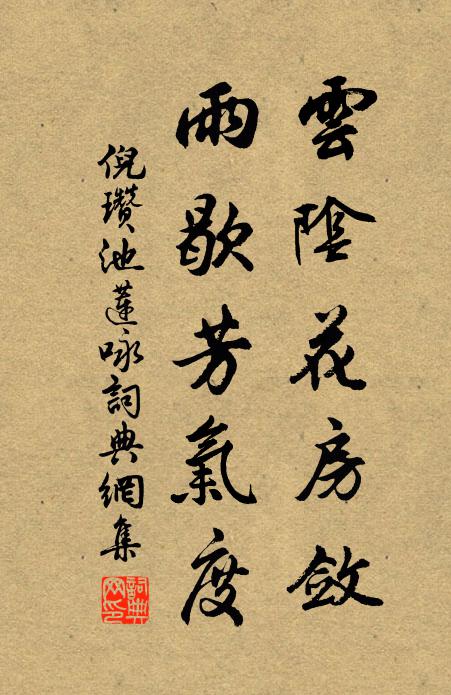 雲陰花房斂
雨歇芳氣度
倪瓚池蓮咏詞典網集
詞典網印